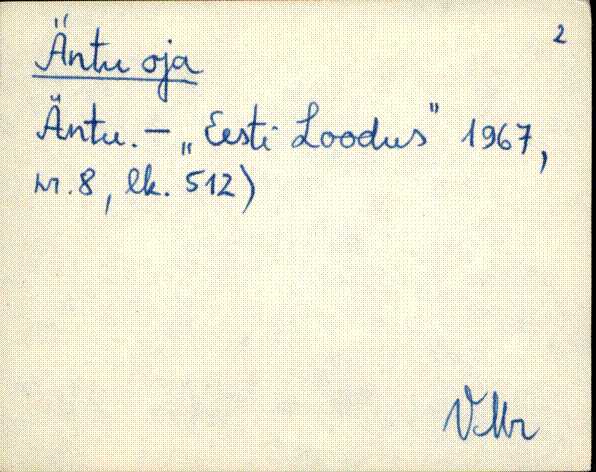 2
Äntu oja
Äntu. – „Eesti Loodus” 1967,
nr. 8, lk. 512)
VMr